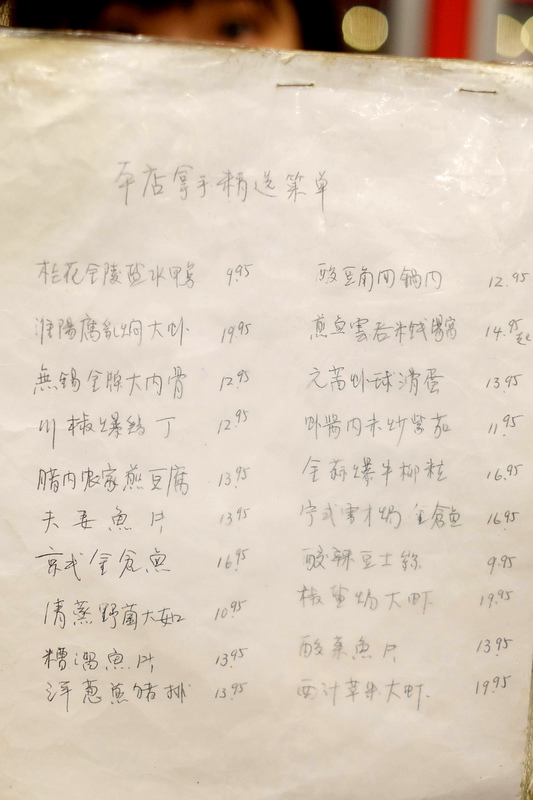 本店拿手精选菜单
桂花金陵盐水鸭 9.95
淮陽腐乳焗大虾 19.95
無锡全腩大肉骨 12.95
川椒爆鸡丁 12.95
腊肉农家煎豆腐 13.95
夫妻魚片 13.95
京式全仓魚 16.95
清蒸野菌大如 10.95
糟溜魚片 13.95
洋蔥煎猪排 13.95
酸豆角回锅肉 12.95
煎魚雲吞 14.95起
虾球滑蛋 13.95
虾醬肉末炒紫茄 11.95
金蒜爆牛柳粒 16.95
宁式雪才焗全倉魚 16.95
酸辣豆士絲 9.95
椒盐焗大虾 19.95
酸菜魚片 13.95
西汁苹果大虾 19.95